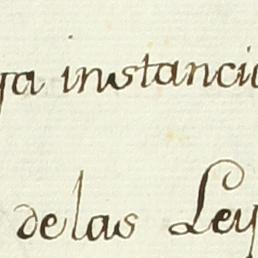 ya instancia
de las Ley